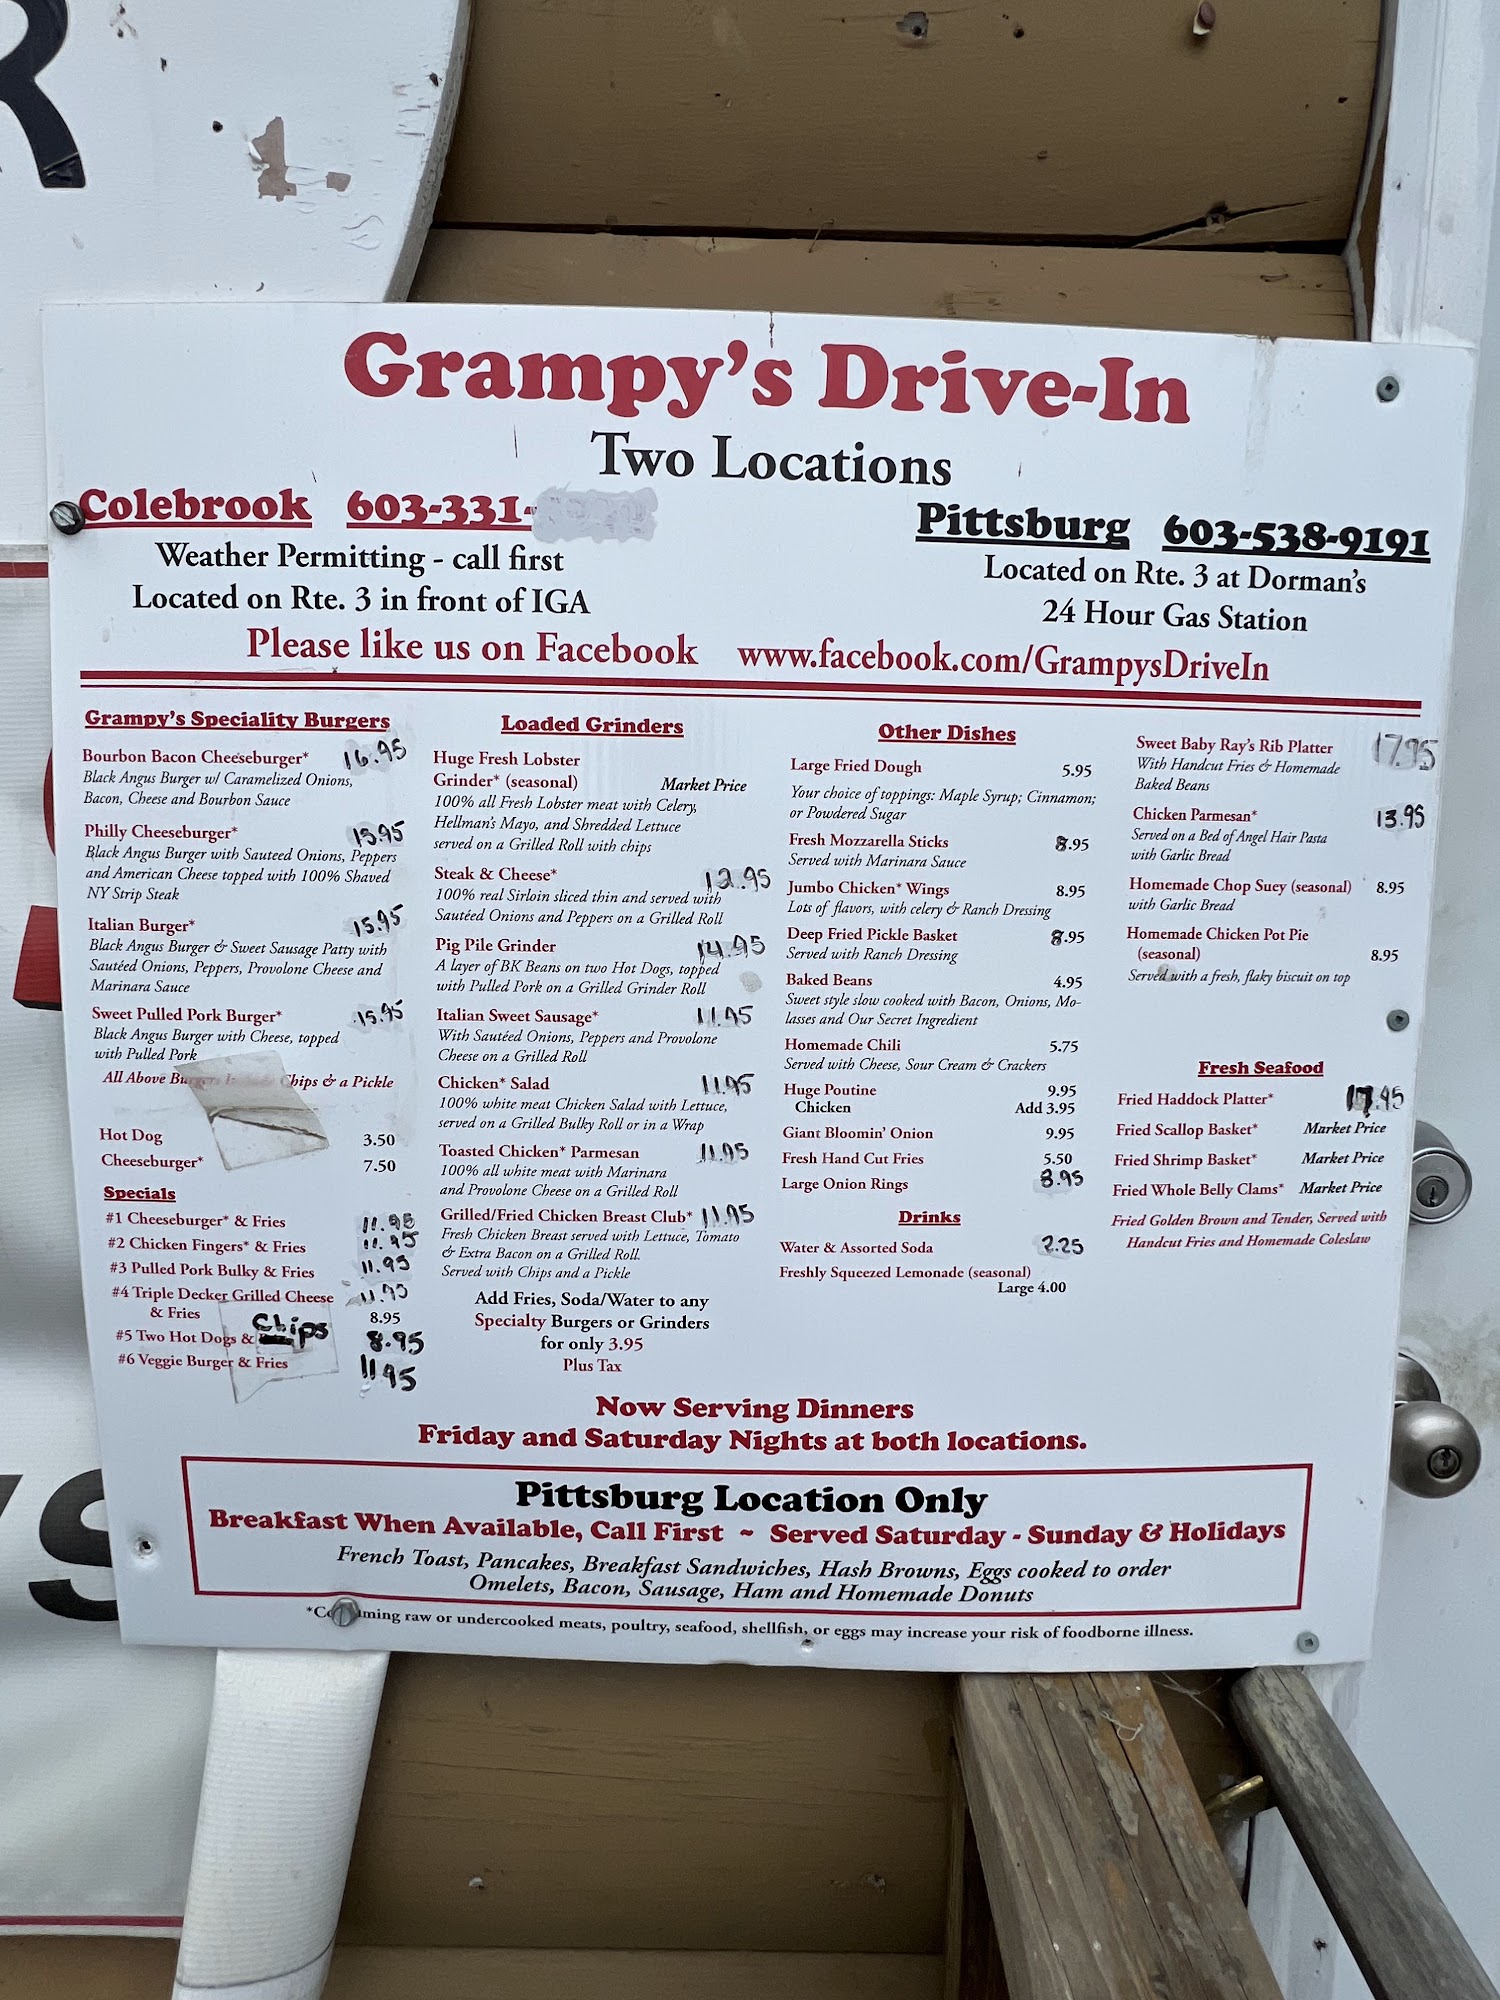 Grampy's Drive-In
Two Locations
Colebrook 603-331-
Weather Permitting - call first
Located on Rte. 3 in front of IGA
Pittsburg 603-538-9191
Located on Rte. 3 at Dorman's
24 Hour Gas Station
Please like us on Facebook www.facebook.com/GrampysDriveIn
Grampy's Speciality Burgers
Bourbon Bacon Cheeseburger* 16.95
Black Angus Burger w/ Caramelized Onions,
Bacon, Cheese and Bourbon Sauce
Philly Cheeseburger* 15.95
Black Angus Burger with Sauteed Onions, Peppers
and American Cheese topped with 100% Shaved
NY Strip Steak
Italian Burger* 15.95
Black Angus Burger & Sweet Sausage Patty with
Sautéed Onions, Peppers, Provolone Cheese and
Marinara Sauce
Sweet Pulled Pork Burger* 15.95
Black Angus Burger with Cheese, topped
with Pulled Pork
All Above Chips & a Pickle
Hot Dog 3.50
Cheeseburger* 7.50
Specials
#1 Cheeseburger* & Fries 11.95
#2 Chicken Fingers* & Fries 11.95
#3 Pulled Pork Bulky & Fries 11.95
#4 Triple Decker Grilled Cheese 11.95
& Fries 8.95
#5 Two Hot Dogs & Chips 8.95
#6 Veggie Burger & Fries 11.95
Loaded Grinders
Huge Fresh Lobster
Grinder* (seasonal) Market Price
100% all Fresh Lobster meat with Celery,
Hellman's Mayo, and Shredded Lettuce
served on a Grilled Roll with chips
Steak & Cheese* 12.95
100% real Sirloin sliced thin and served with
Sautéed Onions and Peppers on a Grilled Roll
Pig Pile Grinder 14.95
A layer of BK Beans on two Hot Dogs, topped
with Pulled Pork on a Grilled Grinder Roll
Italian Sweet Sausage* 11.95
With Sautéed Onions, Peppers and Provolone
Cheese on a Grilled Roll
Chicken* Salad 11.95
100% white meat Chicken Salad with Lettuce,
served on a Grilled Bulky Roll or in a Wrap
Toasted Chicken* Parmesan 11.95
100% all white meat with Marinara
and Provolone Cheese on a Grilled Roll
Grilled/Fried Chicken Breast Club* 11.95
Fresh Chicken Breast served with Lettuce, Tomato
& Extra Bacon on a Grilled Roll.
Served with Chips and a Pickle
Add Fries, Soda/Water to any
Specialty Burgers or Grinders
for only 3.95
Plus Tax
Other Dishes
Large Fried Dough 5.95
Your choice of toppings: Maple Syrup; Cinnamon;
or Powdered Sugar
Fresh Mozzarella Sticks 8.95
Served with Marinara Sauce
Jumbo Chicken* Wings 8.95
Lots of flavors, with celery & Ranch Dressing
Deep Fried Pickle Basket 8.95
Served with Ranch Dressing
Baked Beans 4.95
Sweet style slow cooked with Bacon, Onions, Mo-
lasses and Our Secret Ingredient
Homemade Chili 5.75
Served with Cheese, Sour Cream & Crackers
Huge Poutine 9.95
Chicken Add 3.95
Giant Bloomin' Onion 9.95
Fresh Hand Cut Fries 5.50
Large Onion Rings 8.95
Drinks
Water & Assorted Soda 2.25
Freshly Squeezed Lemonade (seasonal)
Large 4.00
Sweet Baby Ray's Rib Platter 17.95
With Handcut Fries & Homemade
Baked Beans
Chicken Parmesan* 13.95
Served on a Bed of Angel Hair Pasta
with Garlic Bread
Homemade Chop Suey (seasonal) 8.95
with Garlic Bread
Homemade Chicken Pot Pie
(seasonal) 8.95
Served with a fresh, flaky biscuit on top
Fresh Seafood
Fried Haddock Platter* 17.95
Fried Scallop Basket* Market Price
Fried Shrimp Basket* Market Price
Fried Whole Belly Clams* Market Price
Fried Golden Brown and Tender, Served with
Handcut Fries and Homemade Coleslaw
Now Serving Dinners
Friday and Saturday Nights at both locations.
Pittsburg Location Only
Breakfast When Available, Call First ~ Served Saturday - Sunday & Holidays
French Toast, Pancakes, Breakfast Sandwiches, Hash Browns, Eggs cooked to order
Omelets, Bacon, Sausage, Ham and Homemade Donuts
raw or undercooked meats, poultry, seafood, shellfish, or eggs may increase your risk of foodborne illness.